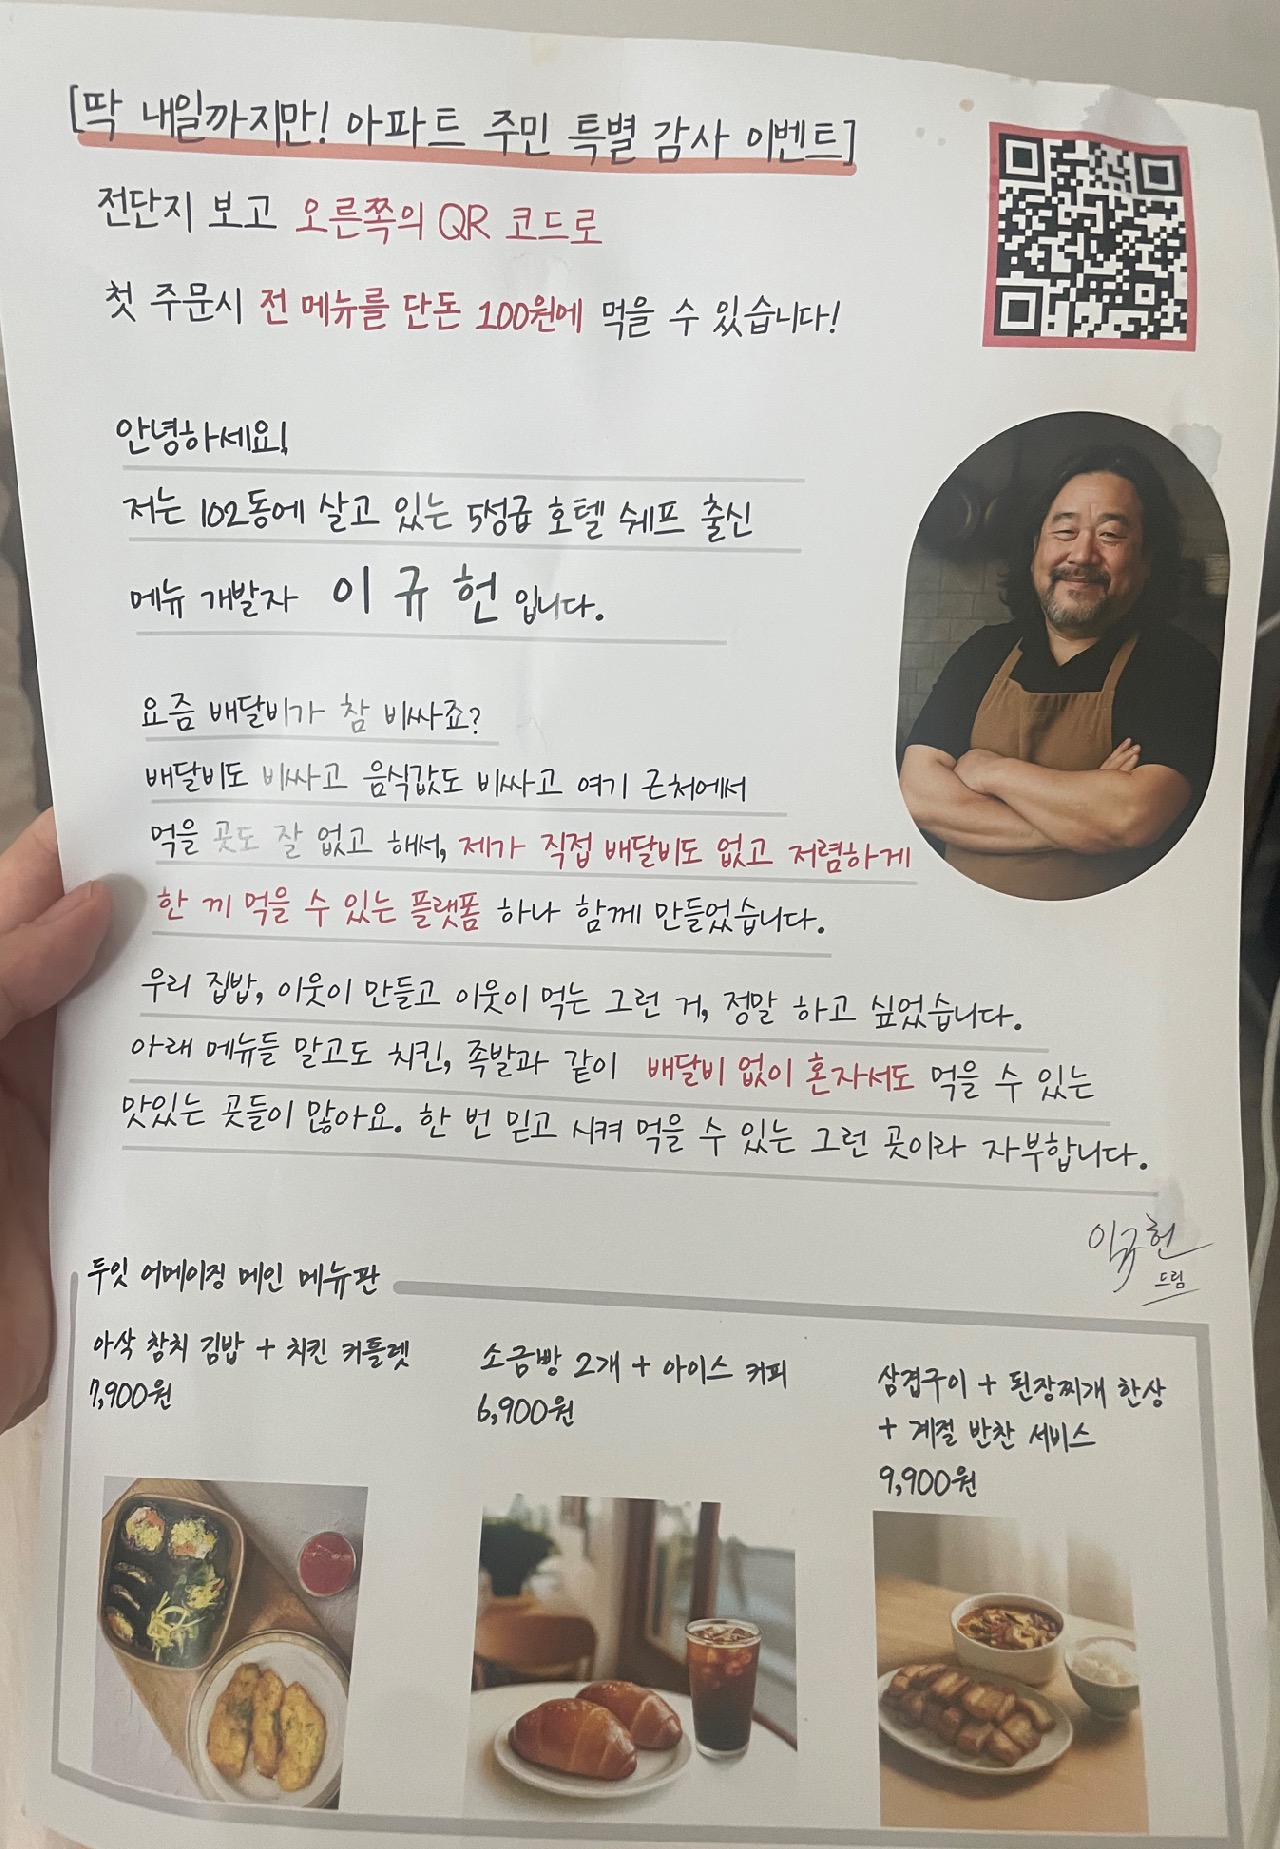 [딱 내일까지만! 아파트 주민 특별 감사 이벤트]
전단지 보고 오른쪽의 QR 코드로
첫 주문시 전 메뉴를 단돈 100원에 먹을 수 있습니다!
안녕하세요!
저는 102동에 살고 있는 5성급 호텔 쉐프 출신
메뉴 개발자 이규헌 입니다.
요즘 배달비가 참 비싸죠?
배달비도 비싸고 음식값도 비싸고 여기 근처에서
먹을 곳도 잘 없고 해서, 제가 직접 배달비도 없고 저렴하게
한 끼 먹을 수 있는 플랫폼 하나 함께 만들었습니다.
우리 집밥, 이웃이 만들고 이웃이 먹는 그런 거, 정말 하고 싶었습니다.
아래 메뉴들 말고도 치킨, 족발과 같이 배달비 없이 혼자서도 먹을 수 있는
맛있는 곳들이 많아요. 한 번 믿고 시켜 먹을 수 있는 그런 곳이라 자부합니다.
이규헌
드림
두잇 어메이징 메인 메뉴판
아삭 참치 김밥 + 치킨 커틀렛
7,900원
소금빵 2개 + 아이스 커피
6,900원
삼겹구이 + 된장찌개 한상
+ 계절 반찬 서비스
9,900원